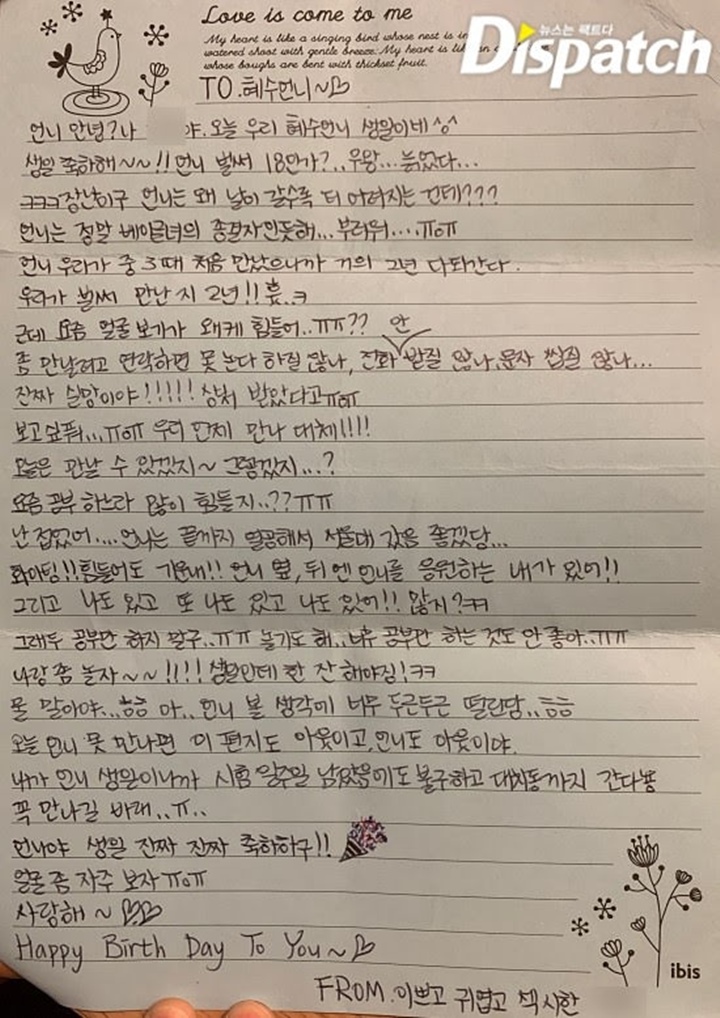 Love is come to me
My heart is like a singing bird whose nest is in
watered shoot with gentle breeze. My heart is like an
whose boughs are bent with thickset fruit.
뉴스는 팩트다
Dispatch
TO. 혜수언니~♡
언니 안녕? 나 야. 오늘 우리 혜수언니 생일이네^^
생일 축하해~~!! 언니 벌써 18인가?..우왕...늙었다...
ㅋㅋㅋ장난이구 언니는 왜 날이 갈수록 더 어려지는 건데???
언니는 정말 베이글녀의 종결자인듯해...부러워....ㅠoㅠ
언니 우리가 중3때 처음 만났으니까 거의 2년 다돼간다.
우리가 벌써 만난 지 2년!! 훗.ㅋ
근데 요즘 얼굴 보기가 왜케 힘들어..ㅠㅠ??
좀 만날려고 연락하면 못 논다 하질 않나, 전화 안 받질 않나, 문자 씹질 않나...
진짜 실망이야!!!!! 상처 받았다고ㅠoㅠ
보고싶퍼...ㅠoㅠ 우리 언제 만나 대체!!!!
오늘은 만날 수 있겠지~ 그렇겠지...?
요즘 공부 하느라 많이 힘들지..??ㅠㅠ
난 접었어....언니는 끝까지 열공해서 서울대 갔음 좋겠당...
화이팅!! 힘들어도 기운내!! 언니 옆, 뒤엔 언니를 응원하는 내가 있어!!
그리고 나도 있고 또 나도 있고 나도 있어!! 알지?ㅋㅋ
그래두 공부만 하지 말구..ㅠㅠ 놀기도 해..너무 공부만 하는 것도 안 좋아..ㅠㅠ
나랑 좀 놀자~~!!!! 생일인데 한 잔 해야징!ㅋㅋ
물 말이야...흐흐 아.. 언니 볼 생각에 너무 두근두근 떨린담..흐흐
오늘 언니 못 만나면 이 편지도 아웃이고, 언니도 아웃이야.
내가 언니 생일이니까 시험 일주일 남았음에도 불구하고 대치동까지 간다뿅
꼭 만나길 바래..ㅠ..
언니야 생일 진짜 진짜 축하하구!!
얼굴 좀 자주 보자ㅠoㅠ
사랑해~♡♡
Happy Birth Day To You~♡
FROM. 이쁘고 귀엽고 섹시한
ibis